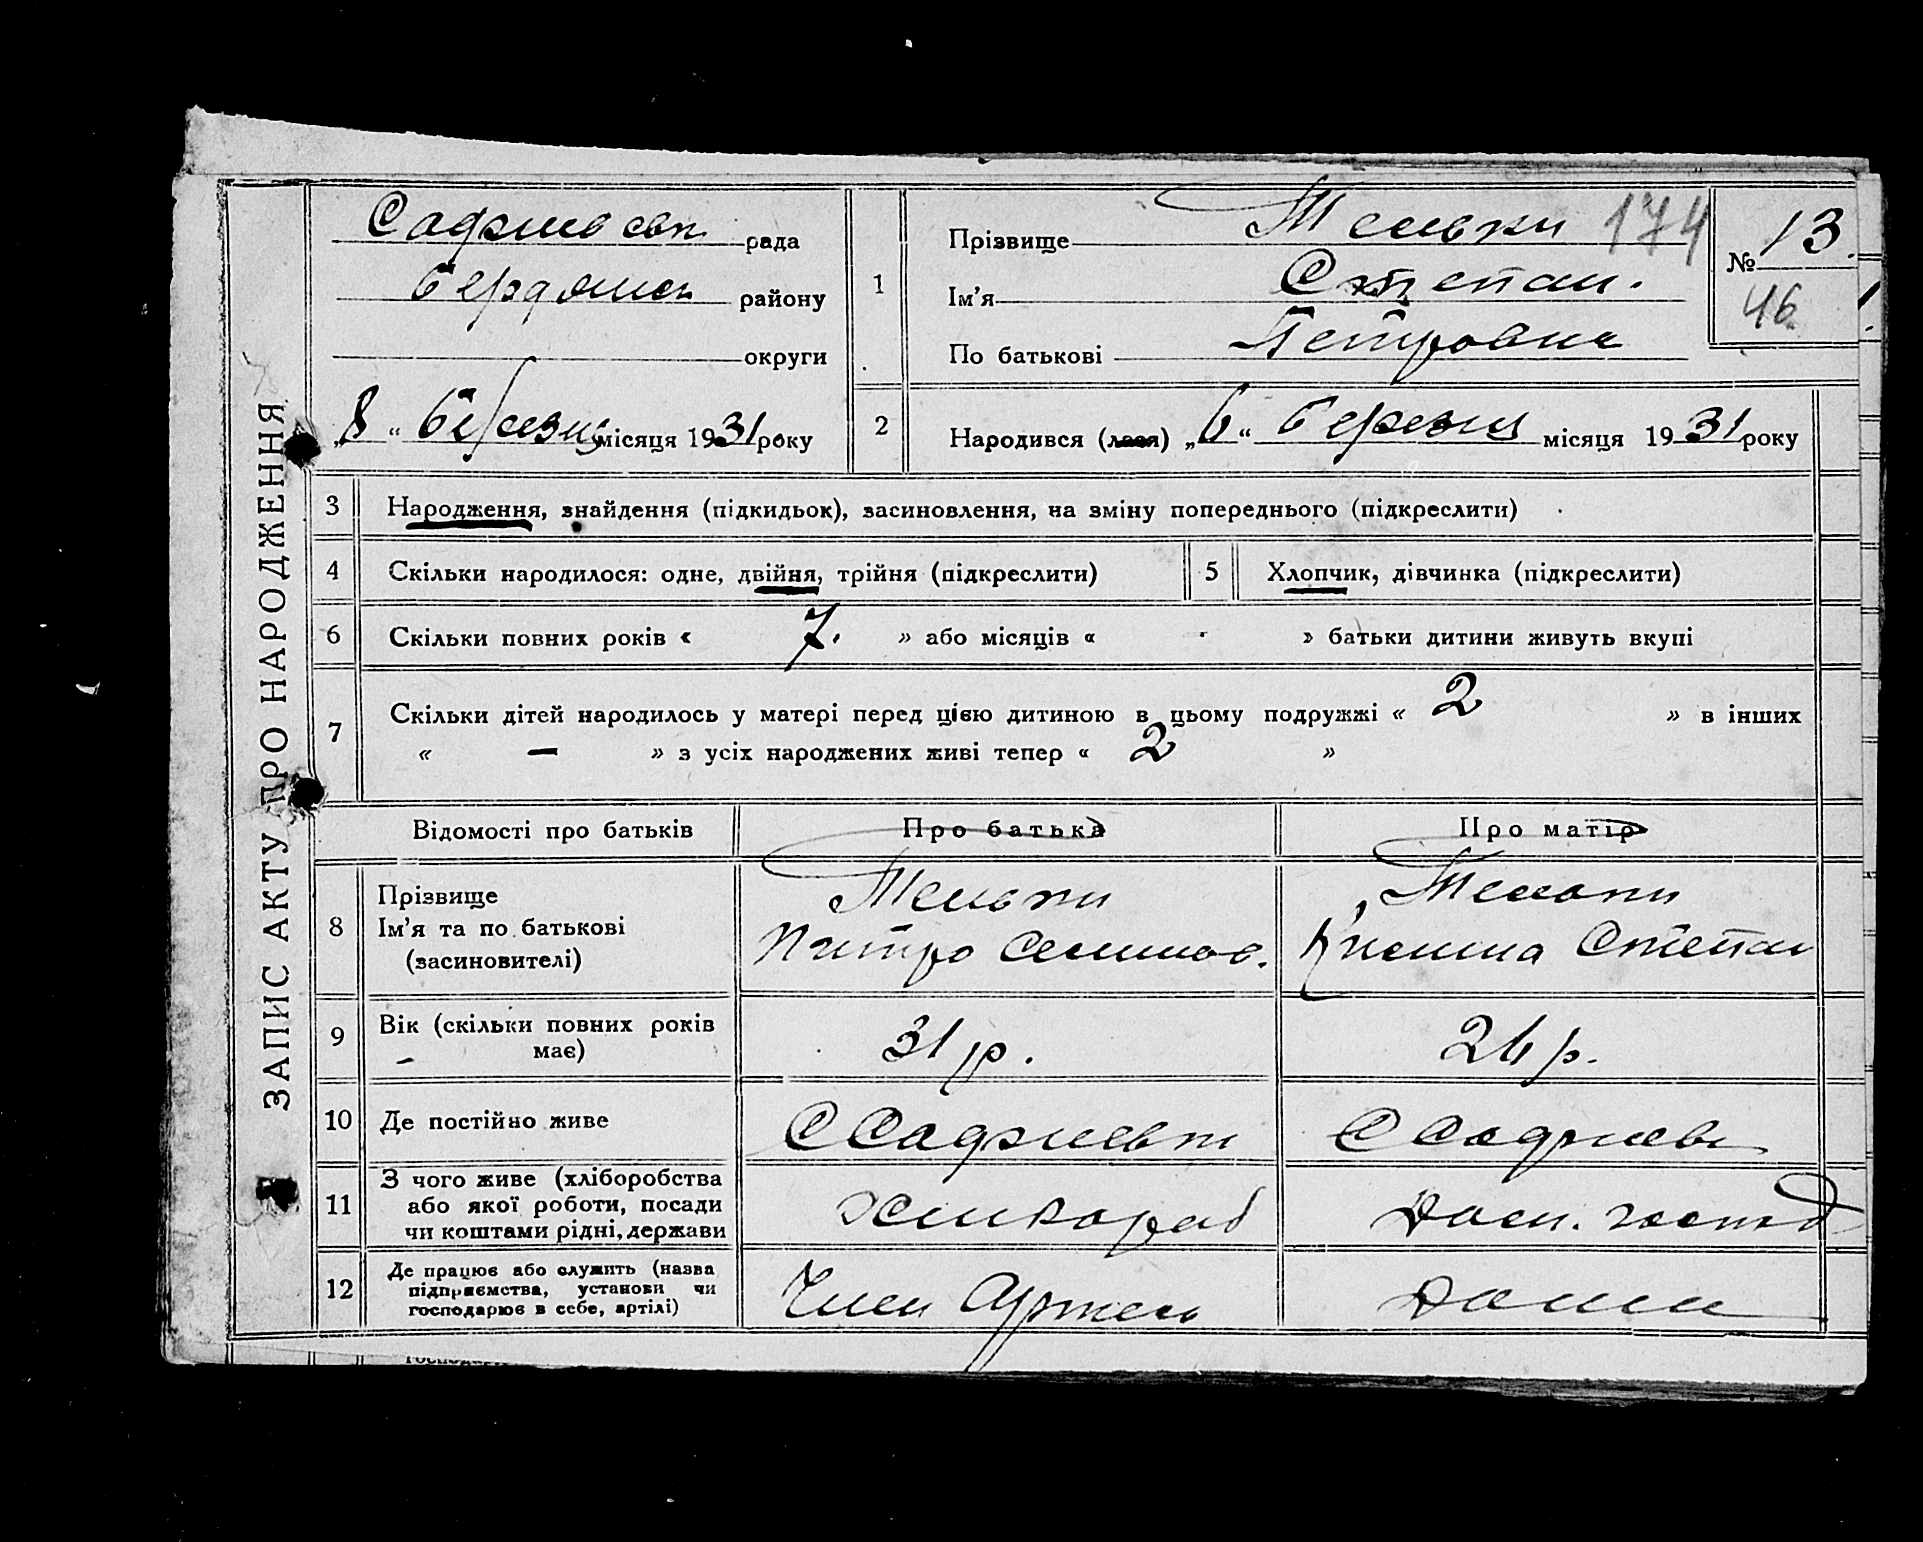 ЗАПИС АКТУ ПРО НАРОДЖЕННЯ
рада
Бердянськ району
округи
„8“ Березня місяця 1931 року
1
Прізвище 174
Ім'я Степан.
По батькові Петрович
№ 13.
46
2
Народився (лася) „6“ Березня місяця 1931 року
3 Народження, знайдення (підкидьок), засиновлення, на зміну попереднього (підкреслити)
4 Скільки народилося: одне, двійня, трійня (підкреслити)
5 Хлопчик, дівчинка (підкреслити)
6 Скільки повних років « 7. » або місяців « » батьки дитини живуть вкупі
7 Скільки дітей народилось у матері перед цією дитиною в цьому подружжі « 2 » в інших
« — » з усіх народжених живі тепер « 2 »
Відомості про батьків
Про батька
Про матір
8
Прізвище
Ім'я та по батькові
(засиновителі)
Петро
Степан
9
Вік (скільки повних років
має)
31 р.
26 р.
10 Де постійно живе
11
З чого живе (хліборобства
або якої роботи, посади
чи коштами рідні, держави
Дом. господ
12
Де працює або служить (назва
підприємства, установи чи
господарює в себе, артілі)
Член Артель
Дома